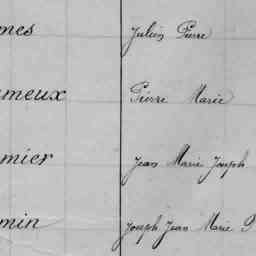 mes Julien Pierre
meux Pierre Marie
mier Jean Marie Joseph
min Joseph Jean Marie P